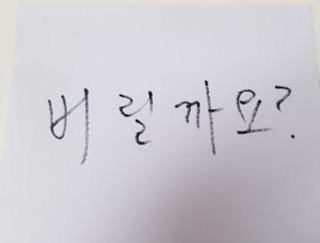 버릴까요?